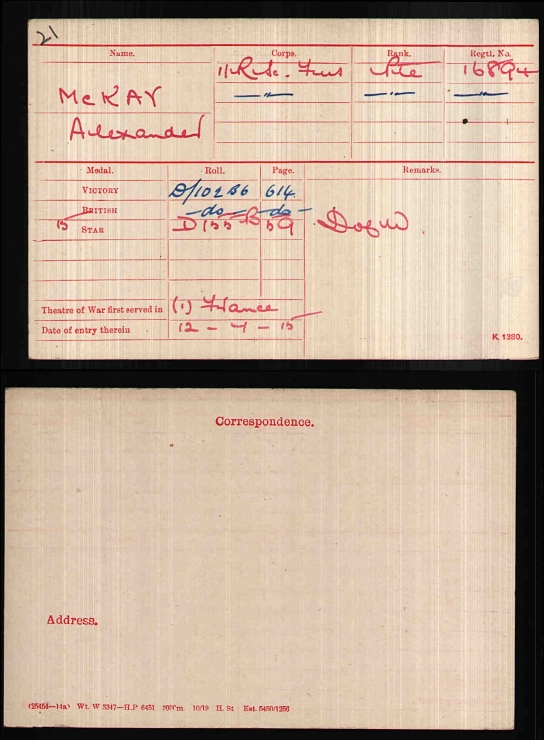 21
Name. Corps. Rank. Regtl. No.
R. Sc. Fus Pte 16894
McKAY — " — — " — — " —
Alexander
Medal. Roll. Page. Remarks.
VICTORY D/102 B6 614
BRITISH — do — — do —
15 STAR D/55 B 59 D of W
Theatre of War first served in (1) France
Date of entry therein 12 - 7 - 15
K 1380.
Correspondence.
Address.
(25454—14a) Wt. W 3347—H.P 6451 10/19 H. St Est. 5480/1256